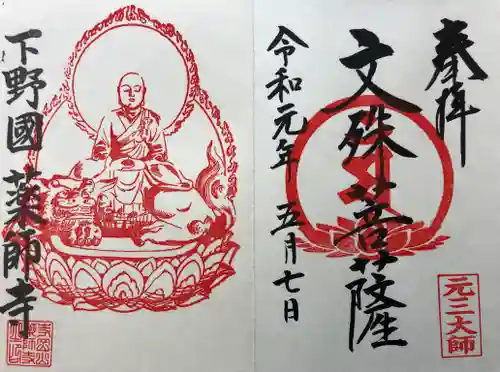 奉拝
文殊菩薩
令和元年 五月七日
元三大師
下野國 薬師寺